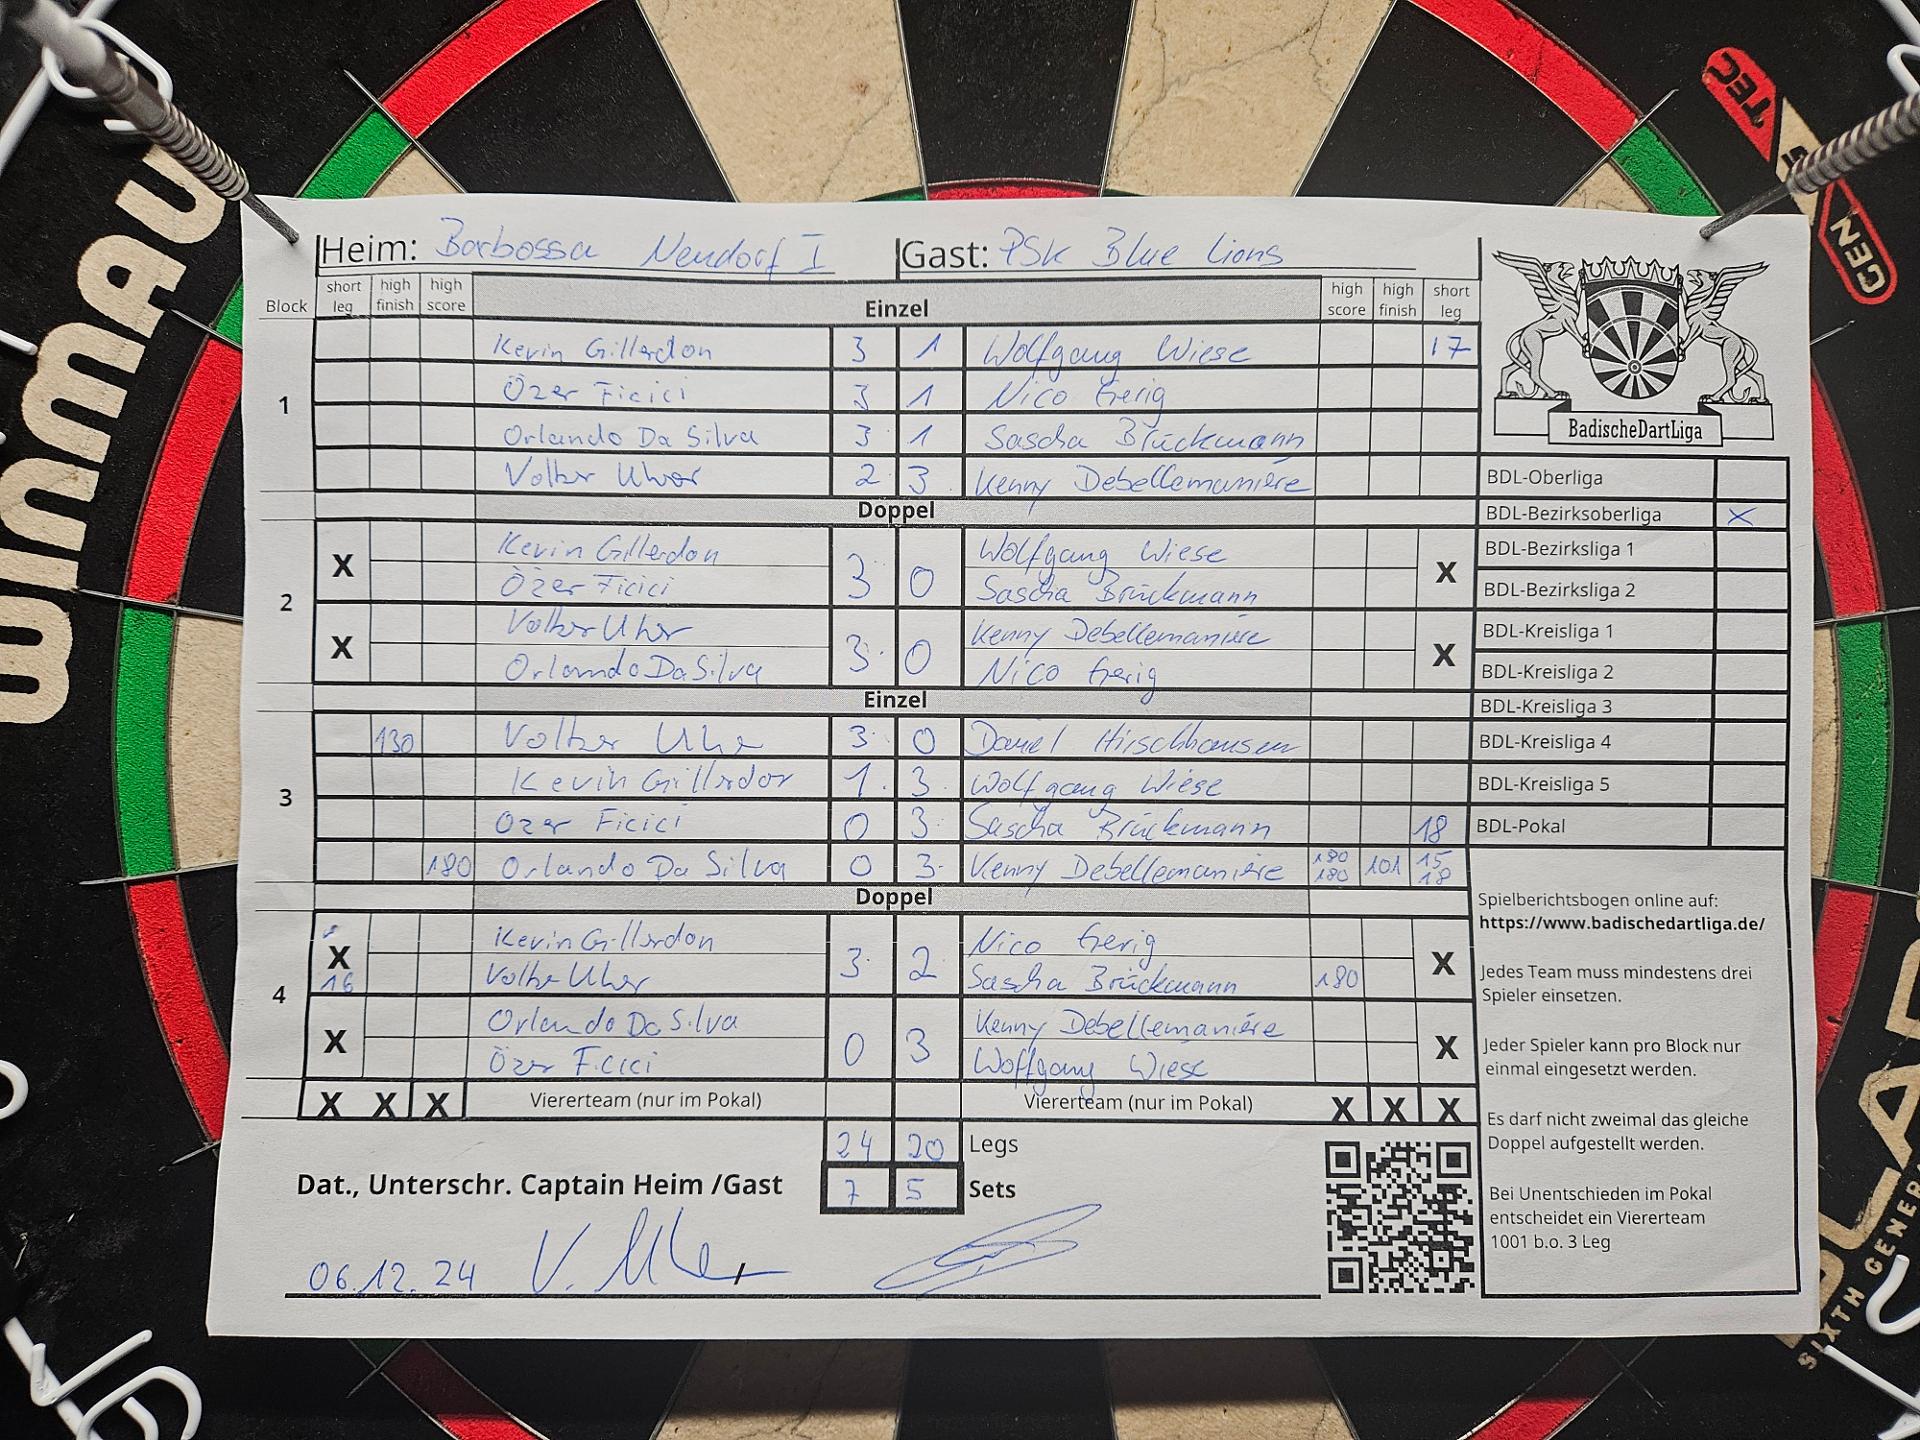 WINMAU
TEC
GEN
Heim: Barbossa Neudorf I Gast: PSK Blue Lions
Block short leg high finish high score Einzel high score high finish short leg
1
Kevin Gillerdon 3 1 Wolfgang Wiese 17
Özer Ficici 3 1 Nico Gerig
Orlando Da Silva 3 1 Sascha Brückmann
Volker Uher 2 3 Kenny Debellemanière
Doppel
2
X Kevin Gillerdon 3 0 Wolfgang Wiese X
Özer Ficici Sascha Brückmann
X Volker Uher 3 0 Kenny Debellemanière X
Orlando Da Silva Nico Gerig
Einzel
3
130 Volker Uhe 3 0 Daniel Hirschhausen
Kevin Gillerdor 1 3 Wolfgang Wiese
Ozer Ficici 0 3 Sascha Brückmann 18
180 Orlando Da Silva 0 3 Kenny Debellemanière 180 180 101 15 18
Doppel
4
X 16 Kevin Gillerdon 3 2 Nico Gerig X
Volker Uher Sascha Brückmann 180
X Orlando Da Silva 0 3 Kenny Debellemanière X
Özer Ficici Wolfgang Wiese
X X X Viererteam (nur im Pokal) Viererteam (nur im Pokal) X X X
24 20 Legs
Dat., Unterschr. Captain Heim /Gast 7 5 Sets
06.12.24 V. Uher
BadischeDartLiga
BDL-Oberliga
BDL-Bezirksoberliga X
BDL-Bezirksliga 1
BDL-Bezirksliga 2
BDL-Kreisliga 1
BDL-Kreisliga 2
BDL-Kreisliga 3
BDL-Kreisliga 4
BDL-Kreisliga 5
BDL-Pokal
Spielberichtsbogen online auf:
https://www.badischedartliga.de/
Jedes Team muss mindestens drei
Spieler einsetzen.
Jeder Spieler kann pro Block nur
einmal eingesetzt werden.
Es darf nicht zweimal das gleiche
Doppel aufgestellt werden.
Bei Unentschieden im Pokal
entscheidet ein Viererteam
1001 b.o. 3 Leg
SIXTH GENER